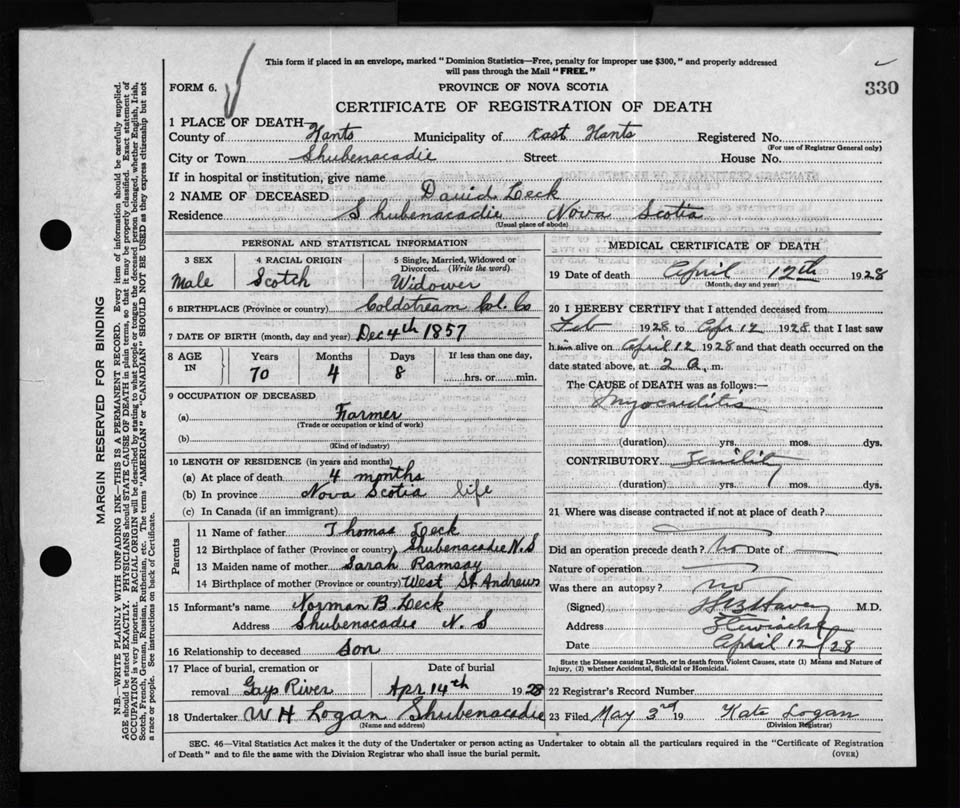 This form if placed in an envelope, marked "Dominion Statistics—Free, penalty for improper use $300," and properly addressed
will pass through the Mail "FREE."
FORM 6.
PROVINCE OF NOVA SCOTIA
330
CERTIFICATE OF REGISTRATION OF DEATH
1 PLACE OF DEATH—
County of Hants Municipality of East Hants Registered No.
(For use of Registrar General only)
City or Town Shubenacadie Street House No.
If in hospital or institution, give name
2 NAME OF DECEASED David Leck
Residence Shubenacadie Nova Scotia
(Usual place of abode)
PERSONAL AND STATISTICAL INFORMATION
3 SEX 4 RACIAL ORIGIN 5 Single, Married, Widowed or
Divorced. (Write the word)
Male Scotch Widower
6 BIRTHPLACE (Province or country) Coldstream Col. Co
7 DATE OF BIRTH (month, day and year) Dec 4th 1857
8 AGE IN Years Months Days If less than one day,
70 4 8 hrs. or min.
9 OCCUPATION OF DECEASED
(a) Farmer
(Trade or occupation or kind of work)
(b)
(Kind of industry)
10 LENGTH OF RESIDENCE (in years and months)
(a) At place of death 4 months
(b) In province Nova Scotia life
(c) In Canada (if an immigrant)
Parents
11 Name of father Thomas Leck
12 Birthplace of father (Province or country) Shubenacadie N.S
13 Maiden name of mother Sarah Ramsay
14 Birthplace of mother (Province or country) West St Andrews
15 Informant's name Norman B Leck
Address Shubenacadie N. S
16 Relationship to deceased Son
17 Place of burial, cremation or Date of burial
removal Gays River Apr 14th 1928
18 Undertaker W H Logan Shubenacadie
(Name and address)
MEDICAL CERTIFICATE OF DEATH
19 Date of death April 12th 1928
(Month, day and year)
20 I HEREBY CERTIFY that I attended deceased from
Feb 1928 to Apr 12 1928 that I last saw
him alive on April 12 1928 and that death occurred on the
date stated above, at 2 a. m.
The CAUSE of DEATH was as follows:—
Myocarditis
(duration) yrs. mos. dys.
CONTRIBUTORY Senility
(duration) yrs. mos. dys.
21 Where was disease contracted if not at place of death?
Did an operation precede death? No Date of
Nature of operation
Was there an autopsy? no
(Signed) M.D.
Address Stewiacke
Date April 12/28
State the Disease causing Death, or in death from Violent Causes, state (1) Means and Nature of
Injury, (2) whether Accidental, Suicidal or Homicidal.
22 Registrar's Record Number
23 Filed May 3rd 19 Kate Logan
(Division Registrar)
SEC. 46—Vital Statistics Act makes it the duty of the Undertaker or person acting as Undertaker to obtain all the particulars required in the "Certificate of Registration
of Death" and to file the same with the Division Registrar who shall issue the burial permit.
(OVER)
MARGIN RESERVED FOR BINDING
N.B.—WRITE PLAINLY WITH UNFADING INK—THIS IS A PERMANENT RECORD. Every item of information should be carefully supplied.
AGE should be stated EXACTLY. PHYSICIANS should STATE CAUSE OF DEATH in plain terms, so that it may be properly classified. Exact statement of
OCCUPATION is very important. RACIAL ORIGIN will be described by stating to what people or tongue the deceased person belonged, whether English, Irish,
Scotch, French, German, Russian, Ruthenian, etc. The terms "AMERICAN" or "CANADIAN" SHOULD NOT BE USED as they express citizenship but not
a race or people. See instructions on back of Certificate.